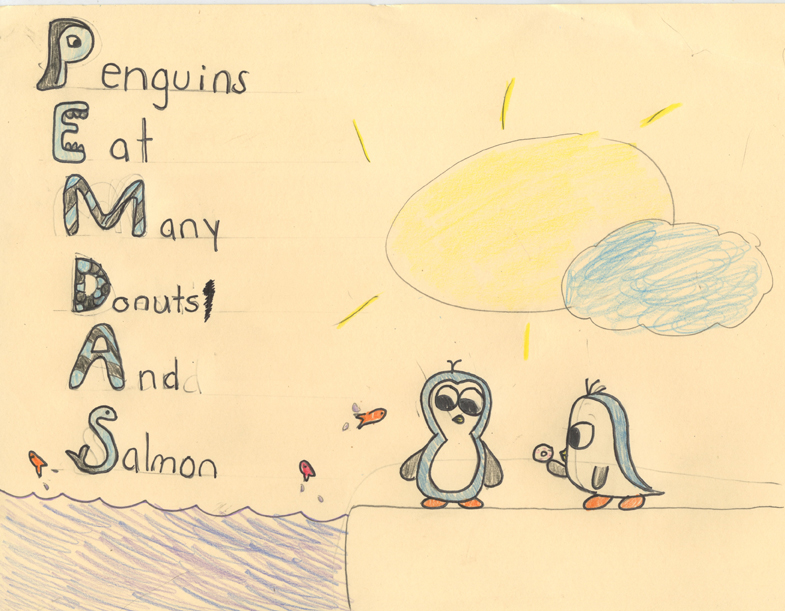 Penguins
Eat
Many
Donuts
And
Salmon